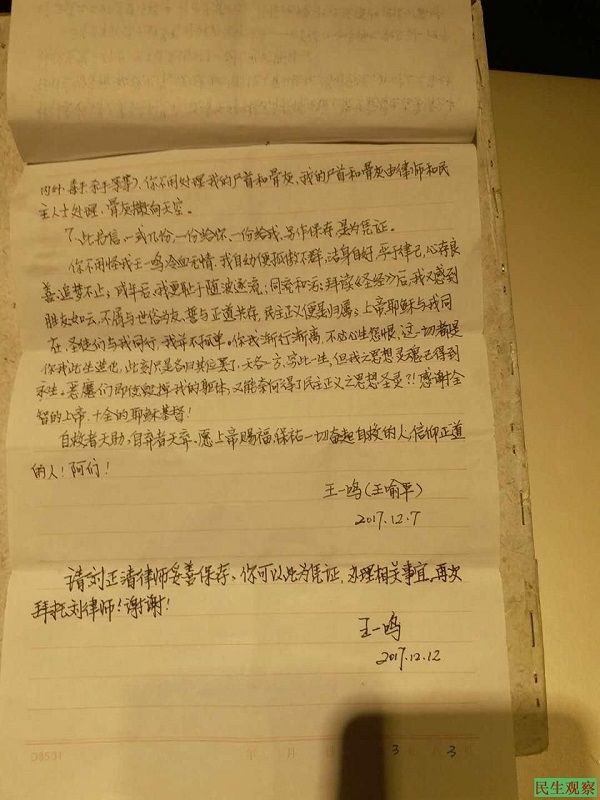 你不用处理我的尸首和骨灰,我的尸首和骨灰由律师和民
主人士处理,骨灰撒向天空。
7、此书信,一式几份,一份给你、一份给我、另作保存,是为凭证。
你不用怪我王一鸣冷血无情,我自幼便孤傲不群,洁身自好,严于律己,心存良
善,追梦不止;成年后,我更耻于随波逐流,同流和污;拜读《圣经》后,我又感到
朋友如云,不屑与世俗为友,誓与正道共存,民主正义便是归属;上帝耶稣与我同
在,圣徒们与我同行,我并不孤单。你我渐行渐离,不必心生怨恨,这一切都是
你我此生造化,此刻只是各归其位罢了,天各一方,字此一生,但我之思想灵魂已得到
永生。恶魔们即使毁掉我的躯体,又能奈何得了民主正义之思想圣灵?!感谢全
智的上帝,十全的耶稣基督!
自救者天助,自弃者天弃。愿上帝赐福、保祐一切奋起自救的人,信仰正道
的人!阿们!
王一鸣(王喻平)
2017.12.7
请刘正清律师妥善保存、你可以此为凭证,办理相关事宜。再次
拜托刘律师!谢谢!
王一鸣
2017.12.12
08501
3
3
民生观察